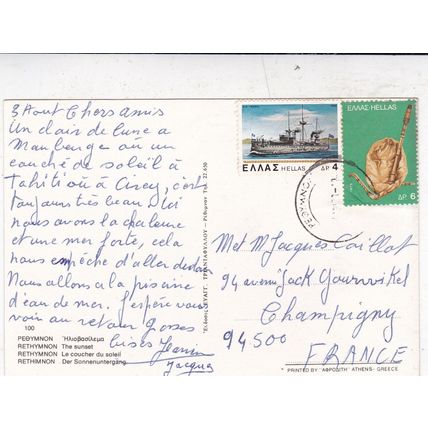 3 Aout Chers amis
Un clair de lune a
Maubeuge ou un
couché de soleil à
Tahiti ou à Cirey, c'est
toujours très beau
nous avons la chaleur
et une mer forte, cela
nous empêche d'aller
Nous allons a la piscine
d'eau de mer. J'espère vous
voir au retour Grosses
bises
Jacques
100
ΡΕΘΥΜΝΟΝ Ἡλιοβασίλεμα
RETHYMNON The sunset
RETHYMNON Le coucher du soleil
RETHIMNON Der Sonnenuntergang
ΤΡΙΑΝΤΑΦΥΛΛΟΥ - Ρέθυμνον Τηλ. 22.850
ΕΛΛΑΣ HELLAS ΔΡ 4
ΕΛΛΑΣ-HELLAS
ΔΡ 6
ΡΕΘΥΜΝΟΝ
Met M Jacques Caillot
94 avenue Jack
Champigny
94500
FRANCE
PRINTED BY "ΑΦΡΟΔΙΤΗ" ATHENS - GREECE